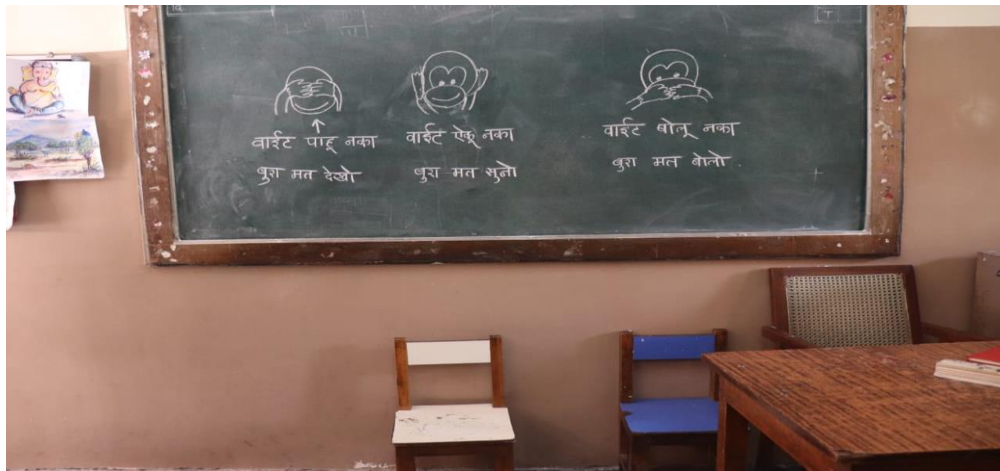 वाईट पाहू नका
बुरा मत देखो
वाईट ऐकू नका
बुरा मत सुनो
वाईट बोलू नका
बुरा मत बोलो